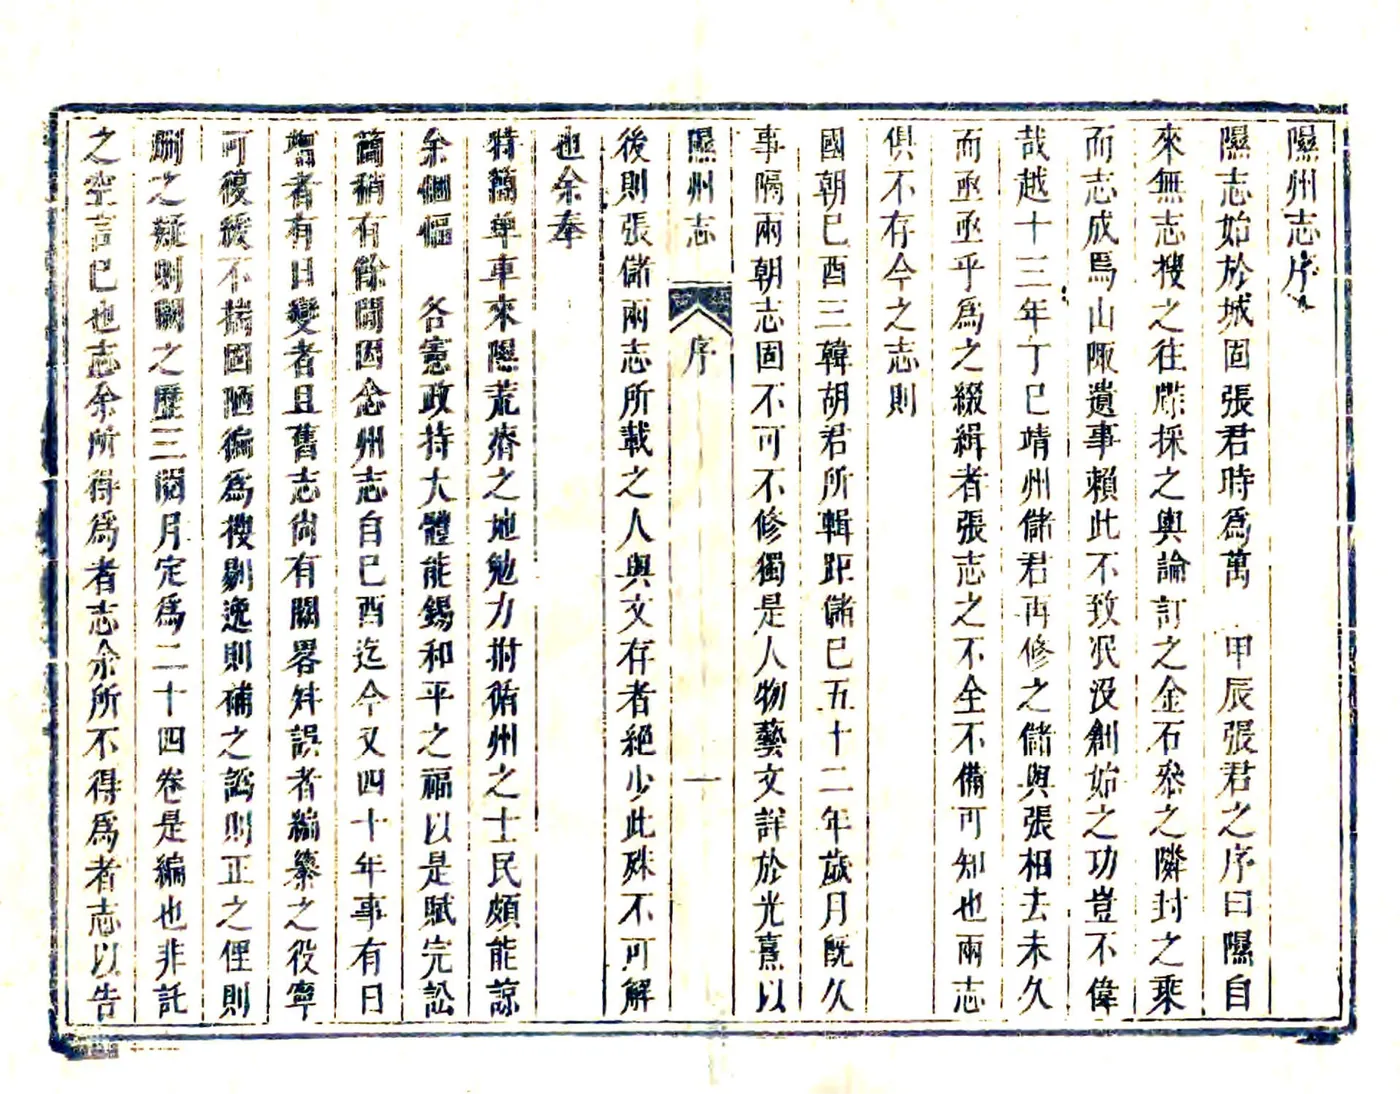 隰州志序
隰志始於城固張君時爲萬　甲辰張君之序曰隰自
來無志搜之往牒採之輿論訂之金石叅之隣封之乘
而志成焉山陬遺事賴此不致泯沒創始之功豈不偉
哉越十三年丁巳靖州儲君再修之儲與張相去未久
而亟亟乎爲之綴緝者張志之不全不備可知也兩志
俱不存今之志則
國朝巳酉三韓胡君所輯距儲巳五十二年歲月旣久
事隔兩朝志固不可不修獨是人物藝文詳於光熹以
隰州志
序
一
後則張儲兩志所載之人與文存者絕少此殊不可解
也余奉
特簡單車來隰荒瘠之地勉力拊循州之士民頗能諒
余悃愊　各憲政持大體能錫和平之福以是賦完訟
簡稍有餘閒因念州志自巳酉迄今又四十年事有日
增者有日變者且舊志尙有闕畧舛誤者編纂之役寧
可復緩不揣固陋徧爲搜剔逸則補之譌則正之俚則
刪之疑則闕之歷三閱月定爲二十四卷是編也非託
之空言巳也志余所得爲者志余所不得爲者志以告